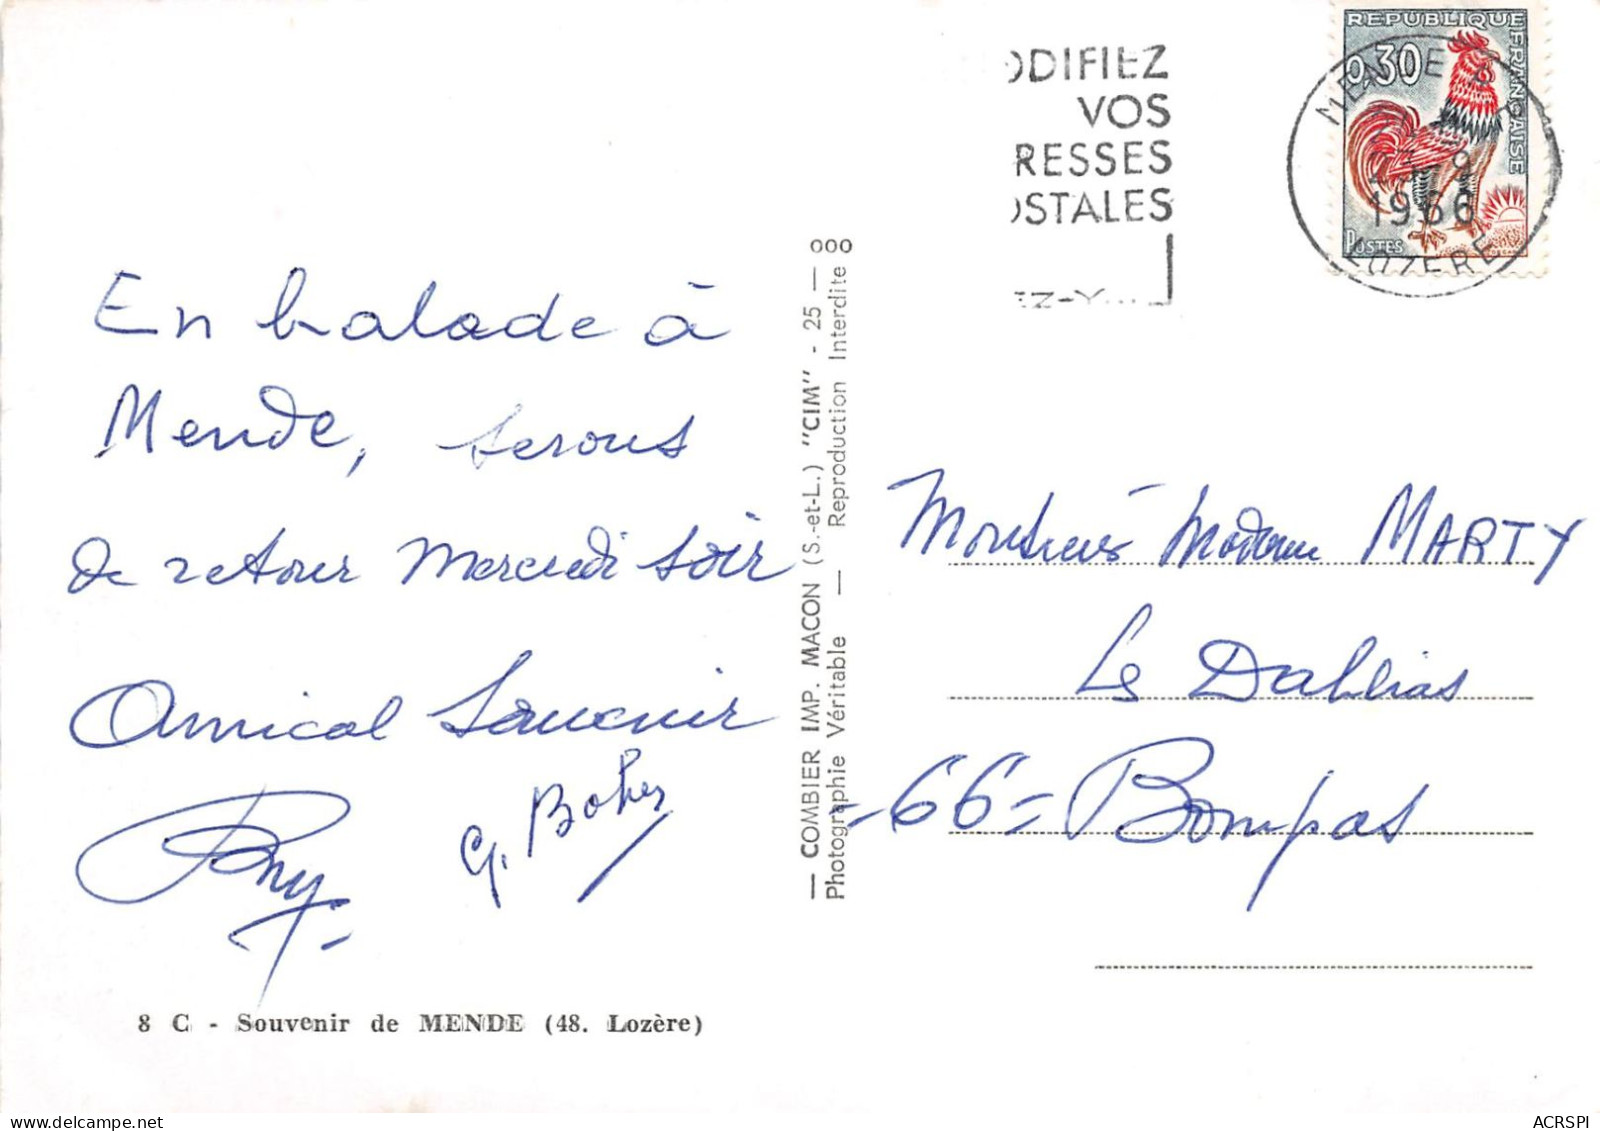 ODIFIEZ
VOS
RESSES
OSTALES
EZ-Y
REPUBLIQUE FRANÇAISE
0,30
POSTES
MENDE
23-9
1966
LOZERE
En balade à
Mende, serons
de retour Mercredi soir
Amical Souvenir
G. Bohes
8 C - Souvenir de MENDE (48. Lozère)
— COMBIER IMP. MACON (S.-et-L.) "CIM" - 25 —
Photographie Véritable — Reproduction Interdite
Monsieur Madame MARTY
Les Dahlias
-66- Bompas
ACRSPI